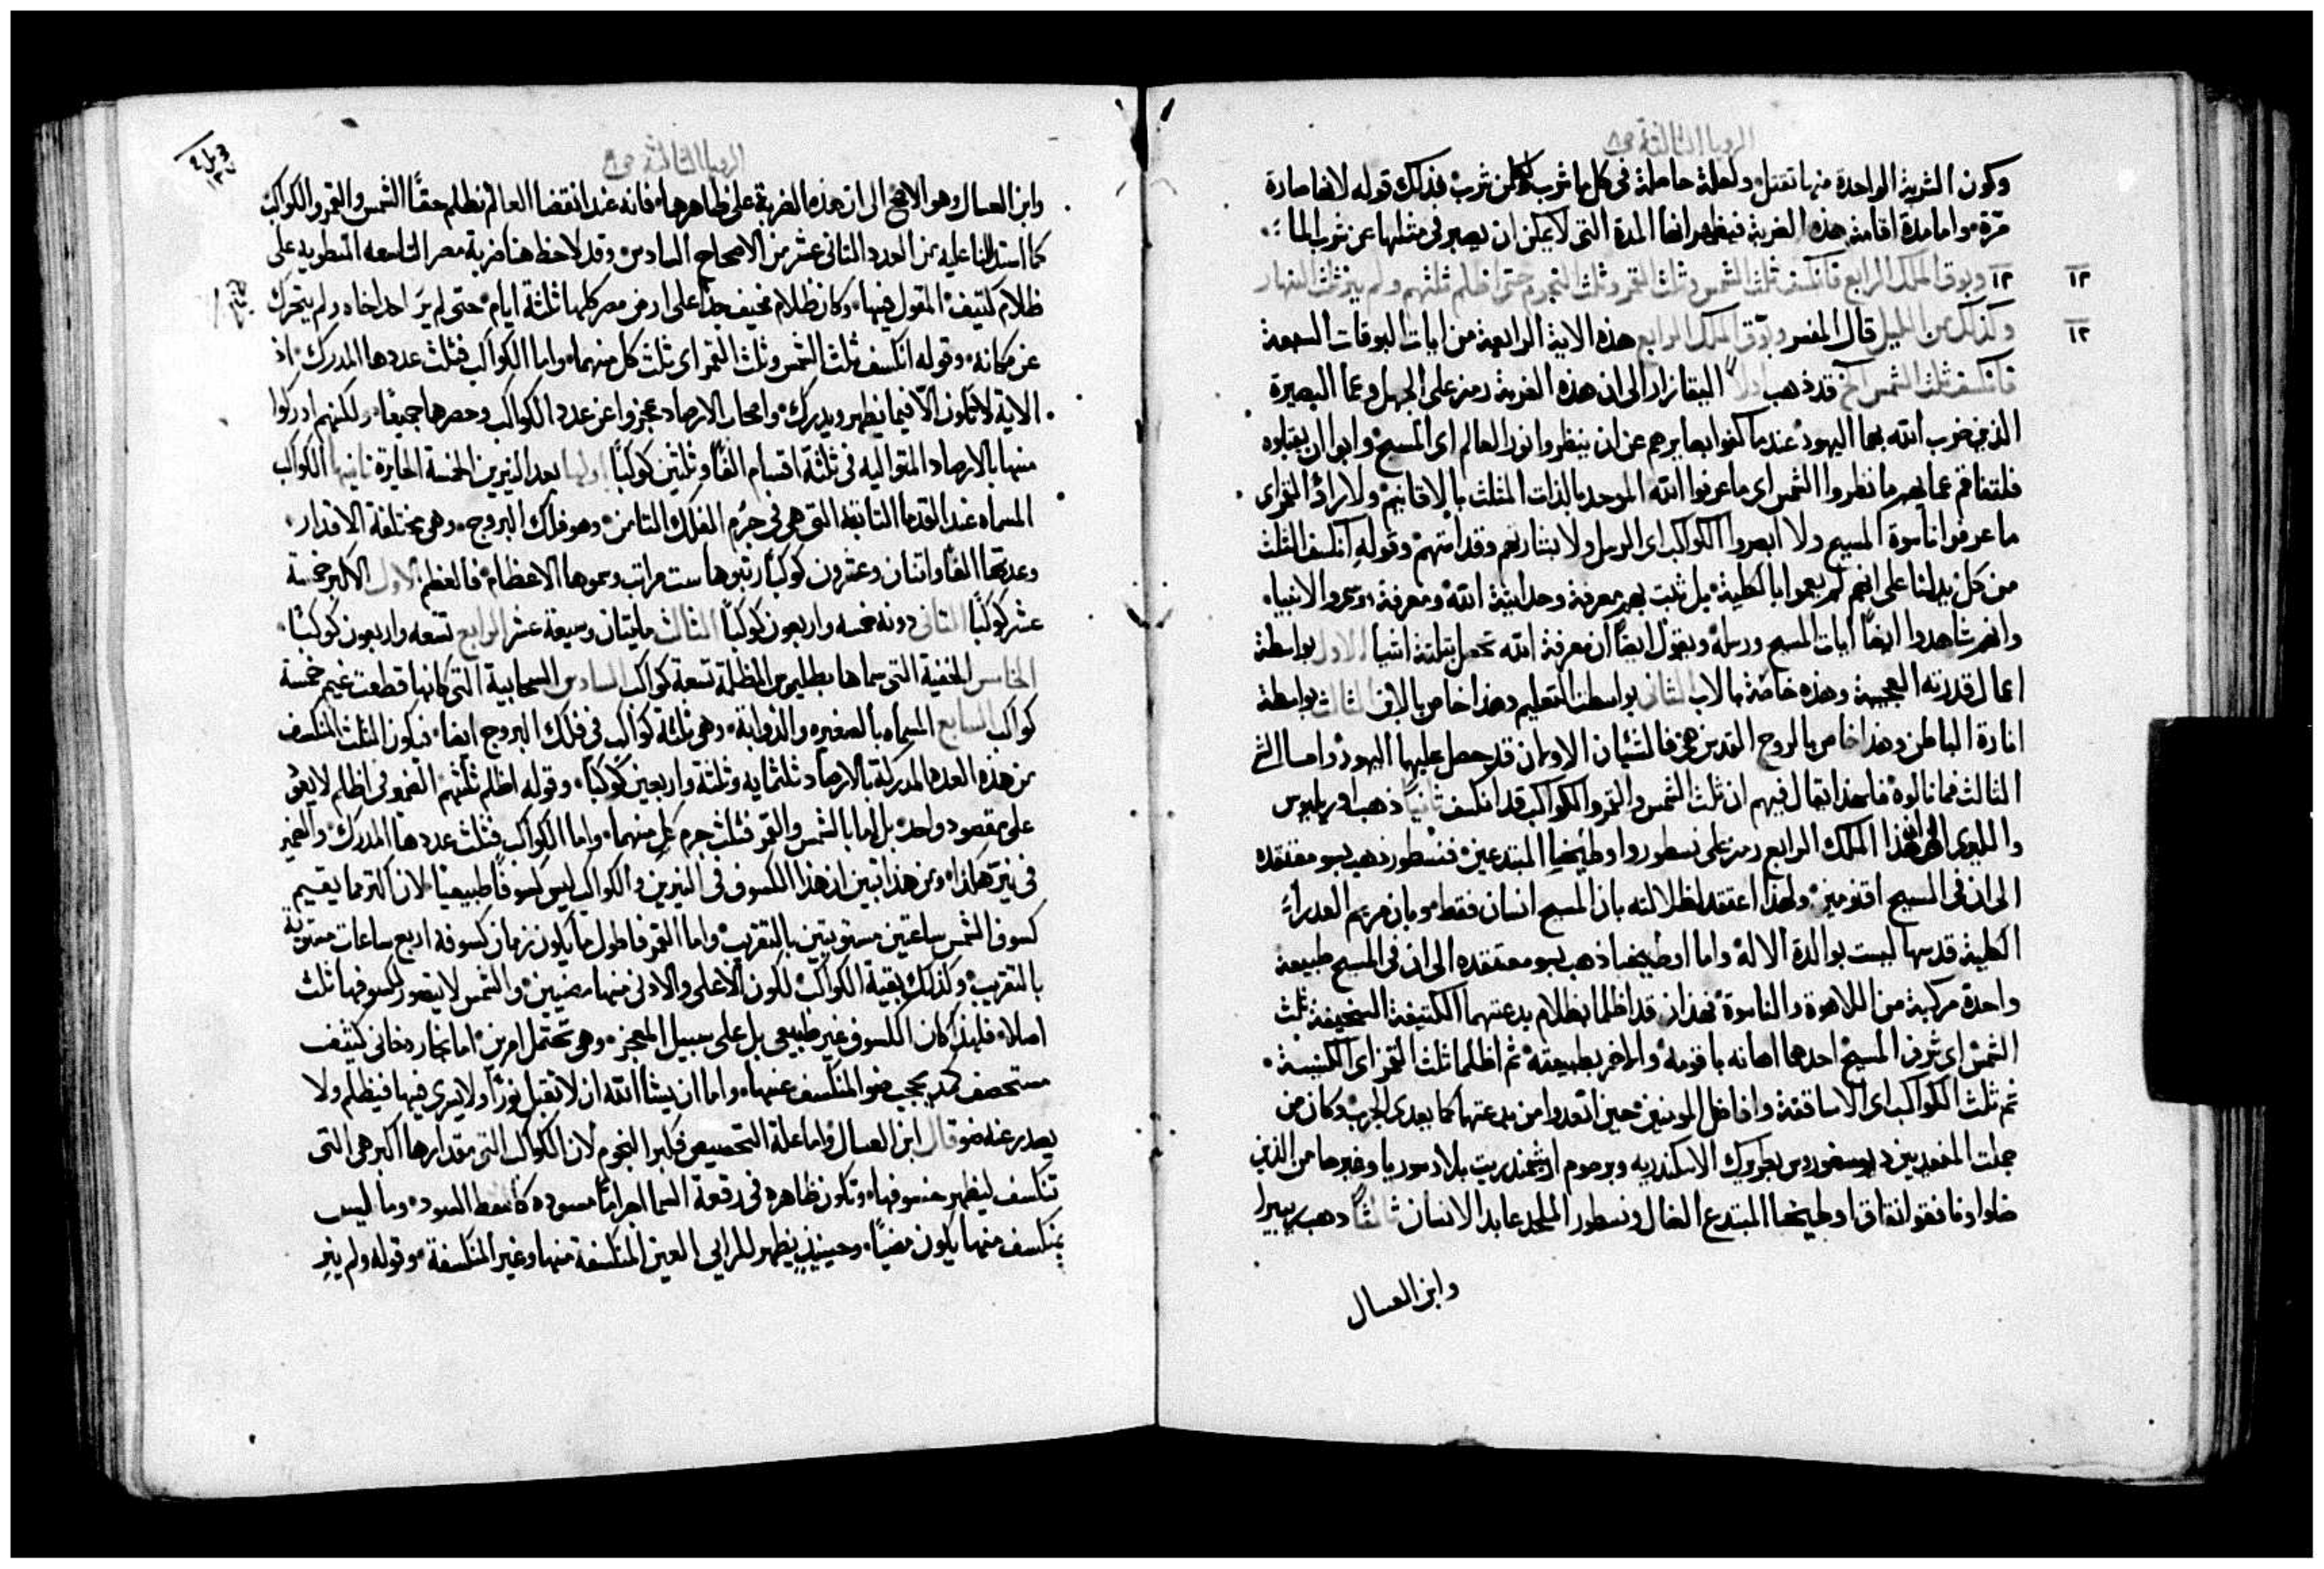 الرويا الثالثة ص ٨
وكون الشربة الواحدة منها تقتل ولعلة حاصلة في كل ما شرب لمن شرب فذلك قوله لانها صارة
مرّة واما مدة اقامة هذه الضربة فيظهر انها المدة التي لا يمكن ان يصبر في مثلها عن شرب الماء
١٢ وبوق الملك الرابع فانكسف ثلث الشمس وثلث القمر وثلث النجوم حتى اظلم ثلثهم ولم ينر ثلث النهار
١٢
وكذلك من الليل قال المفسر وبوّق الملك الرابع هذه الاية الرابعة من ايات البوقات السبعة
١٢
فانكسف ثلث الشمس آخ قد ذهب اولاً البقازار الى ان هذه الضربة رمز على الجهل وعما البصيرة
الذين ضرب الله بهما اليهود عندما كفوا بصايرهم عن ان ينظروا نور العالم اى المسيح وابوا ان يقبلوه
فلتفاقم عمايهم ما نظروا الشمس اى ما عرفوا الله الموحد بالذات المثلث بالاقانيم ولا راوُ القمر اى
ما عرفوا ناسوة المسيح ولا ابصروا الكواكب اى الرسل ولا بشارتهم وقداستهم وقوله انكسف الثلث
من كل يدلنا على انهم لم يعموا بالكلية بل ثبت لهم معرفة وحدانية الله ومعرفة رسموز الانبياء
وانهم شاهدوا ايضًا ايات المسيح ورسله ونقول ايضًا ان معرفة الله تحصل بثلثة اشيا الاول بواسطة
اعمال قدرته العجيبة وهذه خاصّة بالاب الثاني بواسطة التعليم وهذا خاص بالابن الثالث بواسطة
انارة الباطن وهذا خاص بالروح القدس فالشيان الاولان قد حصل عليهما اليهود واما الشي
الثالث فما نالوه فلهذا يقال فيهم ان ثلث الشمس والقمر والكواكب قد انكسف ثانيًا ذهب اوريليوس
والليرى الى ان هذا الملك الرابع رمز على نسطور واوطيخيا المبتدعين فنسطور ذهب بسو معتقده
الى ان في المسيح اقنومين ولهذا اعتقد لضلالته بان المسيح انسان فقط وبان مريم العدراء
الكلية قدسها ليست بوالدة الاله واما اوطيخيا ذهب بسو معتقده الى ان في المسيح طبيعة
واحدة مركبة من اللاهوة والناسوة فهذان قد اظلما بظلام بدعتهما الكثيفة السخيفة ثلث
الشمس اى شرف المسيح احدهما اهانه باقنومه والاخر بطبيعته ثم اظلما ثلث القمر اى الكنيسة
ثم ثلث الكواكب اى الاساقفة وافاضل المومنين حين اتعدوا من بدعتهما كما يعدى الجرب وكان من
جملة المنعديين ديوسقوروس بطريرك الاسكندريه وبرصوم ارشمندريت بلاد سوريا وغيرهما من الذين
ضلوا ونافقوا نفاق اوطيخيا المبتدع الضال ونسطور الملحد عابد الانسان ثالثًا ذهب ريبيرا
وابن العسال
الرويا الثالثة ص ٨
وابن العسال وهو الاصح الى ان هذه الضربة على ظاهرها فانه عند انقضا العالم تظلم حقًا الشمس والقمر والكواكب
كما استدللنا عليه من العدد الثاني عشر من الاصحاح السادس وقد لاحظ هنا ضربة مصر التاسعه المنطوية على
ظلام كثيف المقول فيها وكان ظلام مخيف جدًا على ارض مصر كلها ثلثة ايام حتى لم يرَ احد اخاه ولم يتحرك
عن مكانه وقوله انكسف ثلث الشمس وثلث القمر اى ثلث كل منهما واما الكواكب فثلث عددها المدرك اذ
الاية لا تكون الّا فيما يظهر ويدرك واصحاب الارصاد عجزوا عن عدد الكواكب وحصرها جميعًا ولكنهم ادركوا
منها بالارصاد المتواليه في ثلثة اقسام الفًا وثلثين كوكبًا اولها بعد النيرين الخمسة الحايرة ثانيها الكواكب
المسماه عند القدما الثابتة التي هي في جرم الفلك الثامن وهو فلك البروج وهي مختلفة الاقدار
وعدتها الفًا واثنان وعشرون كوكبًا رتبوها ست مراتب وسموها الاعظام فالعظم الاول الاكبر خمسة
عشر كوكبًا الثاني دونه خمسه واربعون كوكبًا الثالث مايتان وسبعة عشر الرابع تسعه واربعون كوكبًا
الخامس الخفية التي سماها بطليموس المظلمة تسعة كواكب السادس السحابية التي كانها قطعة غيم خمسة
كواكب السابع المسماه بالصغيره والذوابة وهي ثلثة كواكب في فلك البروج ايضًا فيكون الثلث المنكسف
من هذه العدد المدركة بالارصاد ثلثمايه وثلثة واربعين كوكبًا وقوله اظلم ثلثهم الضمير في اظلم لا يعود
على مقصود واحد بل اما بالشمس والقمر فثلث جرم كل منهما واما الكواكب فثلث عددها المدرك والضمير
في ينر هكذا ومن هذا تبين ان هذا الكسوف في النيرين والكواكب ليس كسوفًا طبيعيًا لان اكثر ما يقيم
كسوف الشمس ساعتين مستويتين بالتقريب واما القمر فاطول ما يكون زمان كسوفه اربع ساعات مستوية
بالتقريب وكذلك بقية الكواكب لكون الاعلى والادنى منها مضيين والشمس لا يتصور لكسوفها ثلث
اصلا فلهذا كان الكسوف غير طبيعي بل على سبيل المعجز وهي تحتمل امرين اما بخار دخاني كثيف
مستحصف كمد يحجب ضو المنكسف عنها واما ان يشا الله ان لا تقبل نورًا ولا يسرى فيها فيظلم ولا
يصدر عنه ضو قال ابن العسال واما علة التخصيص فكبر النجوم لان الكواكب التي مقدارها اكبر هي التي
تنكسف ليظهر خسوفها وتكون ظاهره في رقعة السما اجرامًا مسوده كالنقط السود وما ليس
بمنكسف منها يكون مضيًا وحينيذٍ يظهر للرايي العين المنكسفة منها وغير المنكسفة وقوله ولم ينر